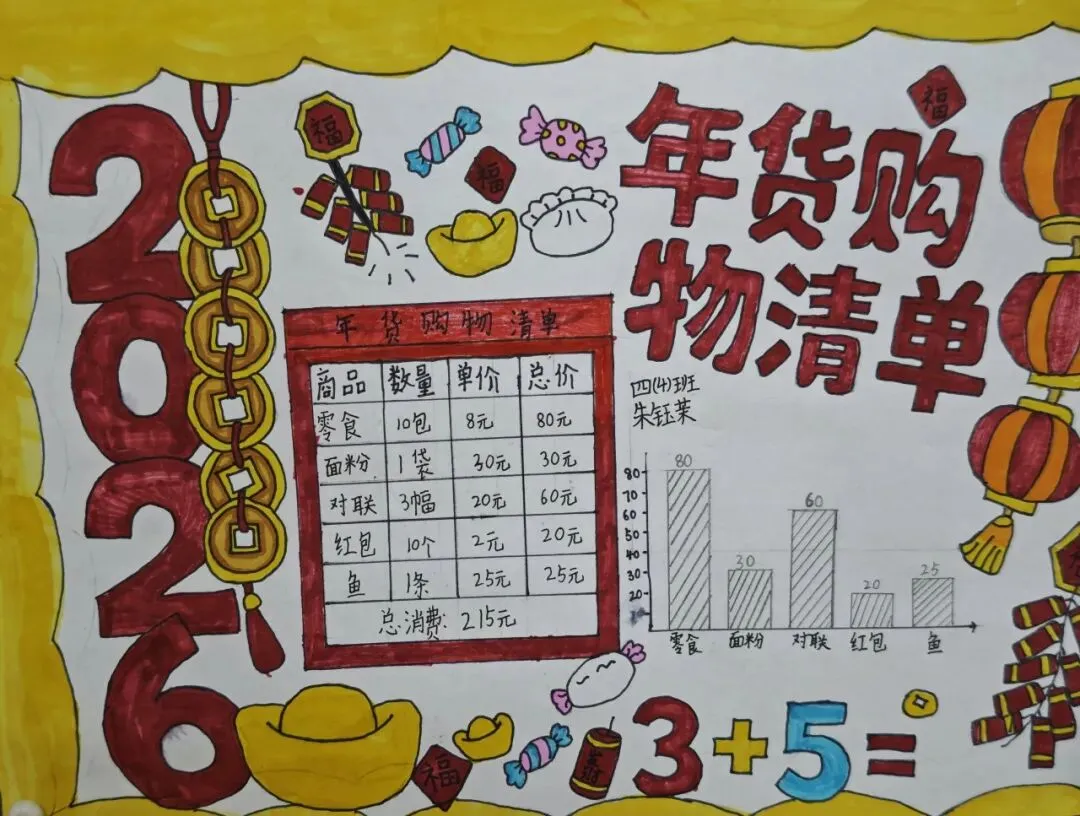 2026
福
福
福
年货购
物清单
年货购物清单
商品 数量 单价 总价
零食 10包 8元 80元
面粉 1袋 30元 30元
对联 3幅 20元 60元
红包 10个 2元 20元
鱼 1条 25元 25元
总消费: 215元
四(4)班
朱钰莱
80
70
60
50
40
30
20
80
30
60
20
25
零食 面粉 对联 红包 鱼
福
3+5=